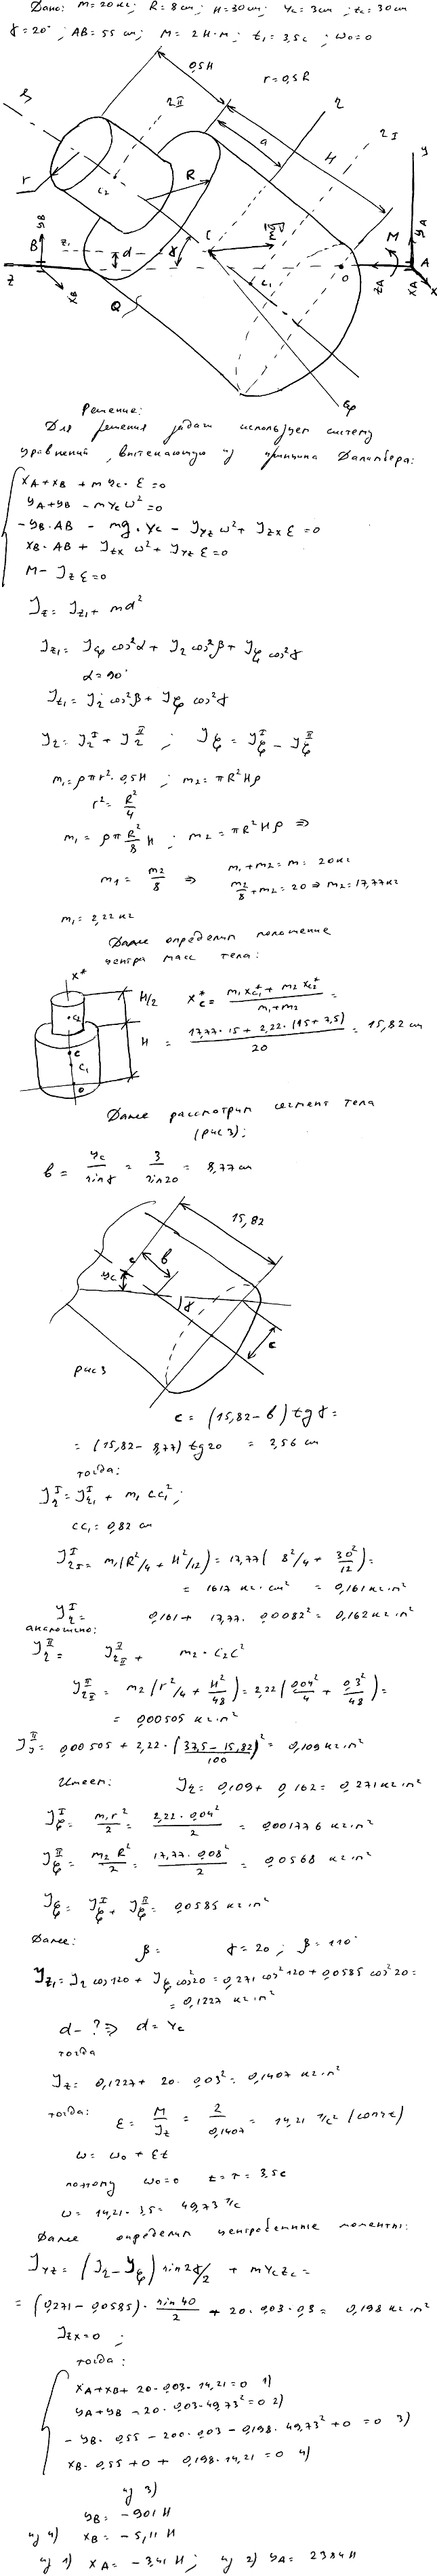 Дано: M=20кг; R=8см; H=30см; Yc=3см; zc=30см
γ=20°; AB=55см; M=2Н·м; t₁=3,5с; ω₀=0
0,5H
r=0,5R
ξ
2II
a
H
η
2I
y
r
c₂
R
yB
B
z₁
d
γ
C
ε
M
yA
z
xB
Q
c₁
O
zA
xA
A
x
Gφ
Решение:
Для решения задач использует систему
уравнений, вытекающую из принципа Даламбера:
xA+xB+myc·ε=0
yA+yB-mycω²=0
-yB·AB-mg·yc-Jyzω²+Jzxε=0
xB·AB+Jzxω²+Jyzε=0
M-Jzε=0
Jz=Jz₁+md²
Jz₁=Jφcos²α+J₂cos²β+Jξcos²γ
α=90°
Jz₁=J₂cos²β+Jξcos²γ
J₂=J₂ᴵ+J₂ᴵᴵ; Jξ=Jξᴵ-Jξᴵᴵ
m₁=ρπr²·0,5H; m₂=πR²Hρ
r²=R²/4
m₁=ρπR²/8 H; m₂=πR²Hρ ⇒
m₁=m₂/8 ⇒ m₁+m₂=m=20кг
m₂/8+m₂=20⇒m₂=17,77кг
m₁=2,22кг
Далее определим положение
центра масс тела:
x*
c₂
c
c₁
O
H/2
H
x*c=(m₁x*c₁+m₂x*c₂)/(m₁+m₂)=
=(17,77·15+2,22·(15+7,5))/20=15,82см
Далее рассмотрим сегмент тела
(рис3):
b=yc/sinγ=3/sin20=8,77см
15,82
c
b
yc
γ
c
рис3
c=(15,82-b)tgγ=
=(15,82-8,77)tg20=2,56см
тогда:
J₂ᴵ=J₂₁ᴵ+m₁cc₁²;
cc₁=0,82см
J₂₅ᴵ=m₁(R²/4+H²/12)=17,77(8²/4+30²/12)=
=1617кг·см²=0,161кг·м²
J₂ᴵ=0,161+17,77·0,0082²=0,162кг·м²
аналогично:
J₂ᴵᴵ=J₂ᴵᴵ+m₂·c₂c²
J₂ᴵᴵ=m₂(r²/4+H²/48)=2,22(0,04²/4+0,3²/48)=
=0,00505кг·м²
J₂ᴵᴵ=0,00505+2,22·((37,5-15,82)/100)²=0,109кг·м²
Имеем: J₂=0,109+0,162=0,271кг·м²
Jξᴵ=m₁r²/2=2,22·0,04²/2=0,001776кг·м²
Jξᴵᴵ=m₂R²/2=17,77·0,08²/2=0,0568кг·м²
Jξ=Jξᴵ+Jξᴵᴵ=0,0585кг·м²
Далее: β= γ=20; β=110°
Jz₁=J₂cos120+Jξcos²20=0,271cos²120+0,0585cos²20=
=0,1227кг·м²
d-?⇒d=Yc
тогда
Jz=0,1227+20·0,03²=0,1407кг·м²
тогда: ε=M/Jz=2/0,1407=14,21 1/с² (const)
ω=ω₀+εt
поэтому ω₀=0 t=τ=3,5с
ω=14,21·3,5=49,73 1/с
Далее определим центробежные моменты:
Jyz=(J₂-Jξ)sin2γ/2+mYcZc=
=(0,271-0,0585)·sin40/2+20·0,03·0,3=0,198кг·м²
Jzx=0;
тогда:
xA+xB+20·0,03·14,21=0 1)
yA+yB-20·0,03·49,73²=0 2)
-yB·0,55-200·0,03-0,198·49,73²+0=0 3)
xB·0,55+0+0,198·14,21=0 4)
из 3)
yB=-901Н
из 4) xB=-5,11Н
из 1) xA=-3,41Н; из 2) yA=2384Н